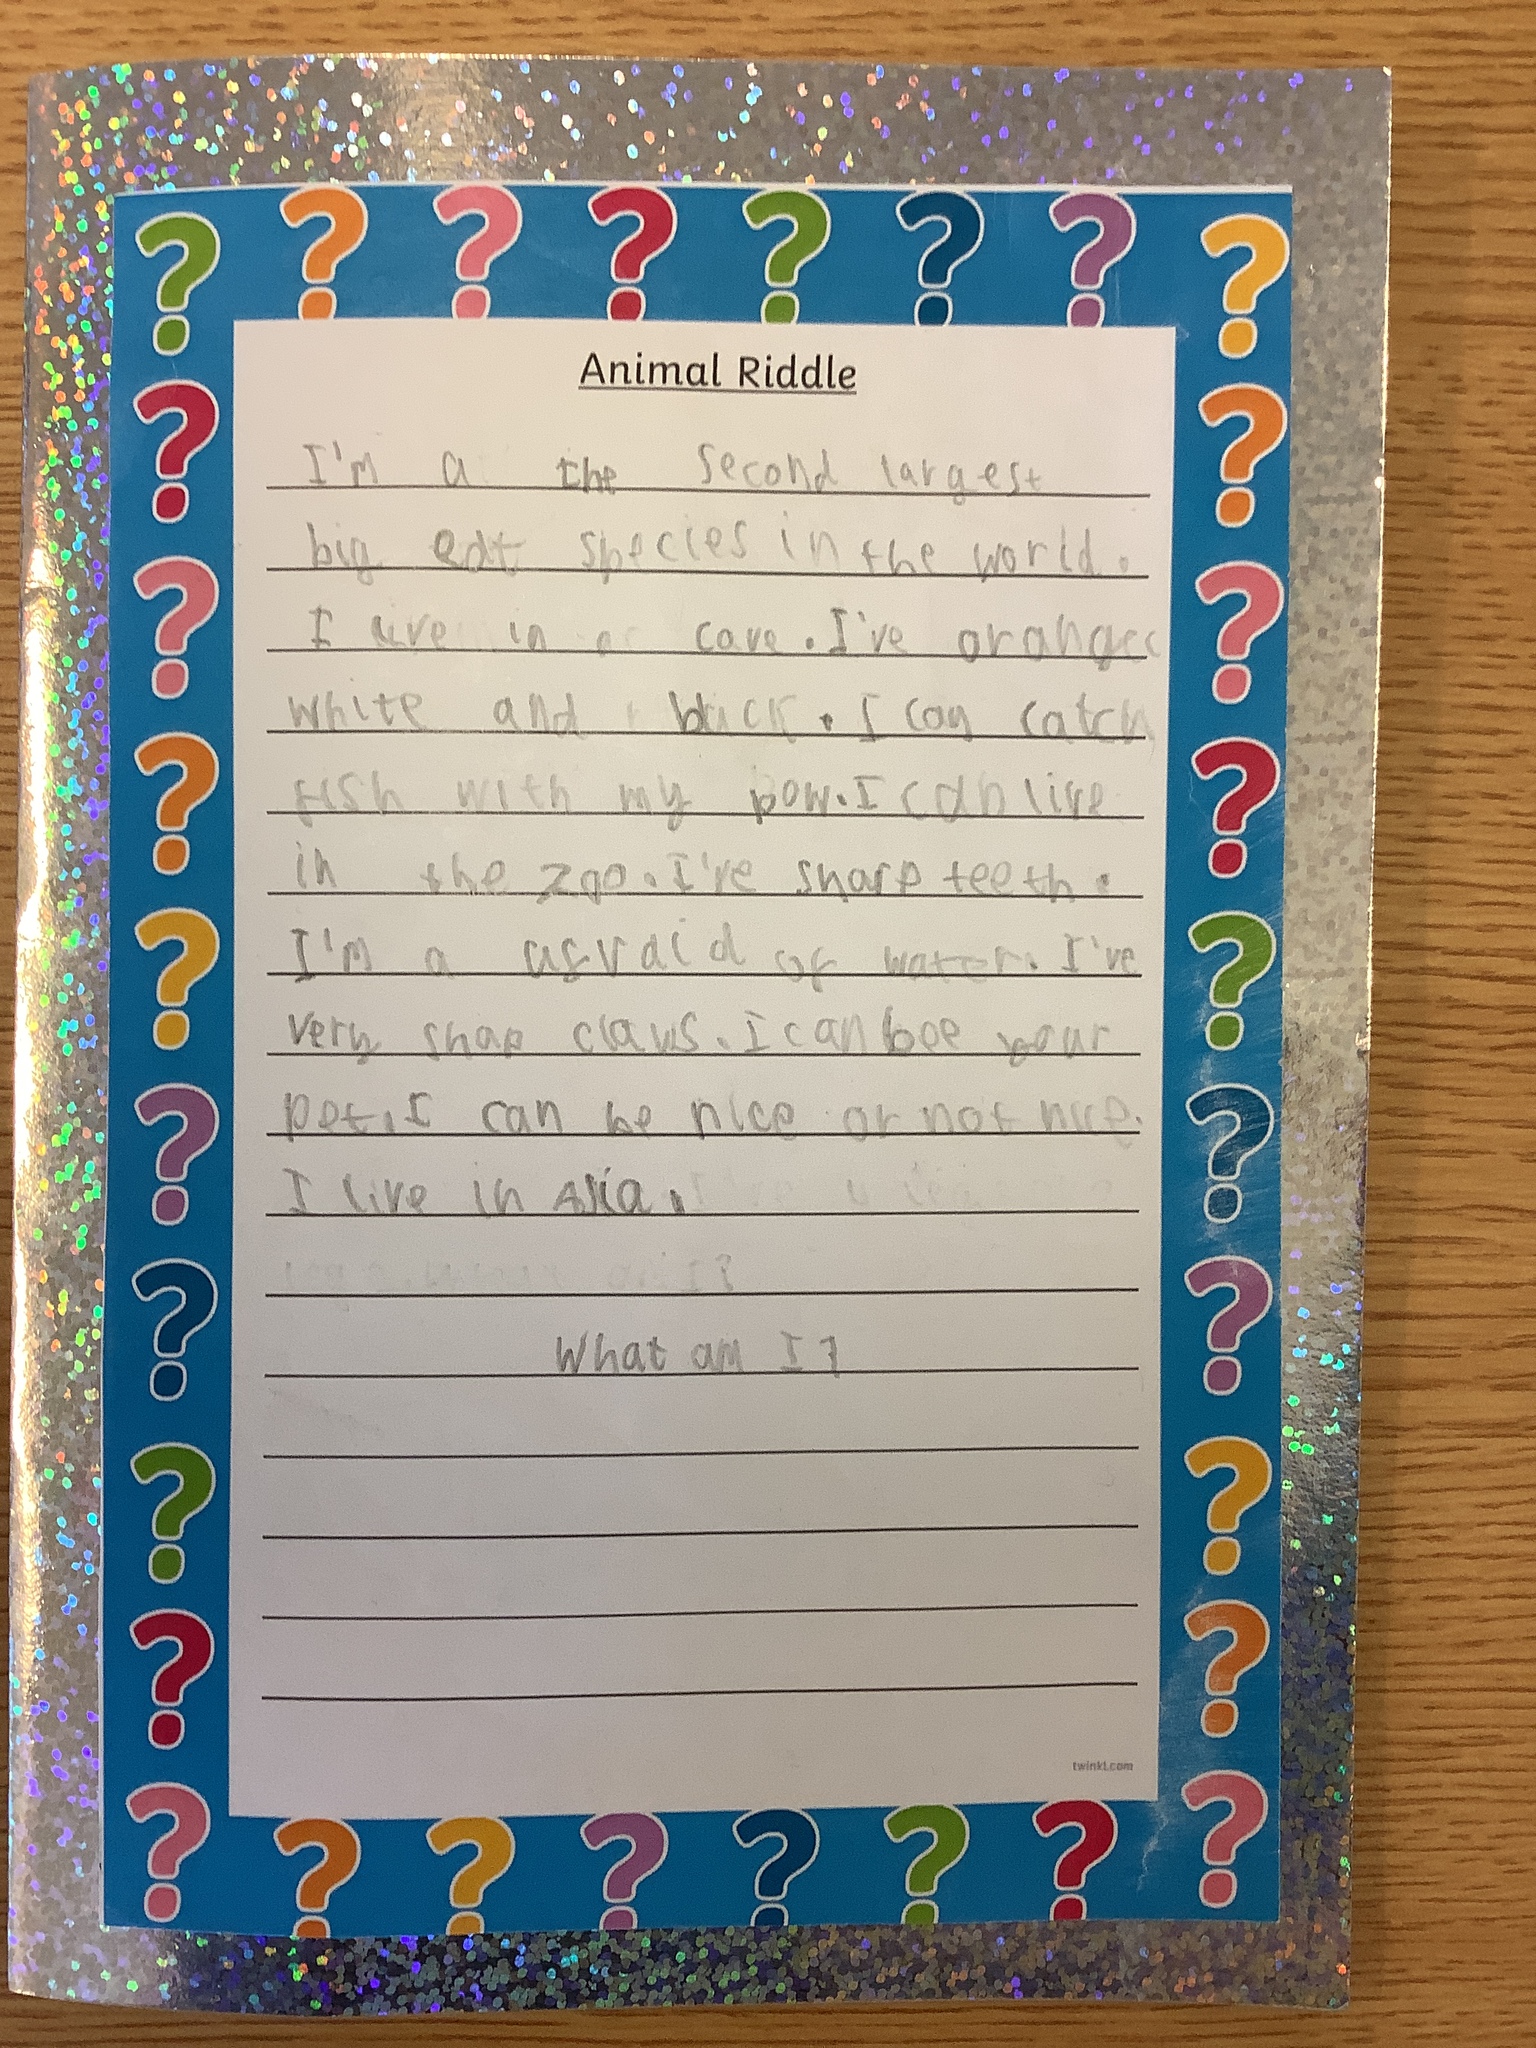 Animal Riddle
I'm a the second largest
big cat species in the world.
I live in a cave. I've orange
white and black. I can catch
fish with my paw. I can live
in the zoo. I've sharp teeth.
I'm a of water. I've
very shap claws. I can bee your
pet. I can be nice or not nice.
I live in Asia.
What am I?
twinkl.com